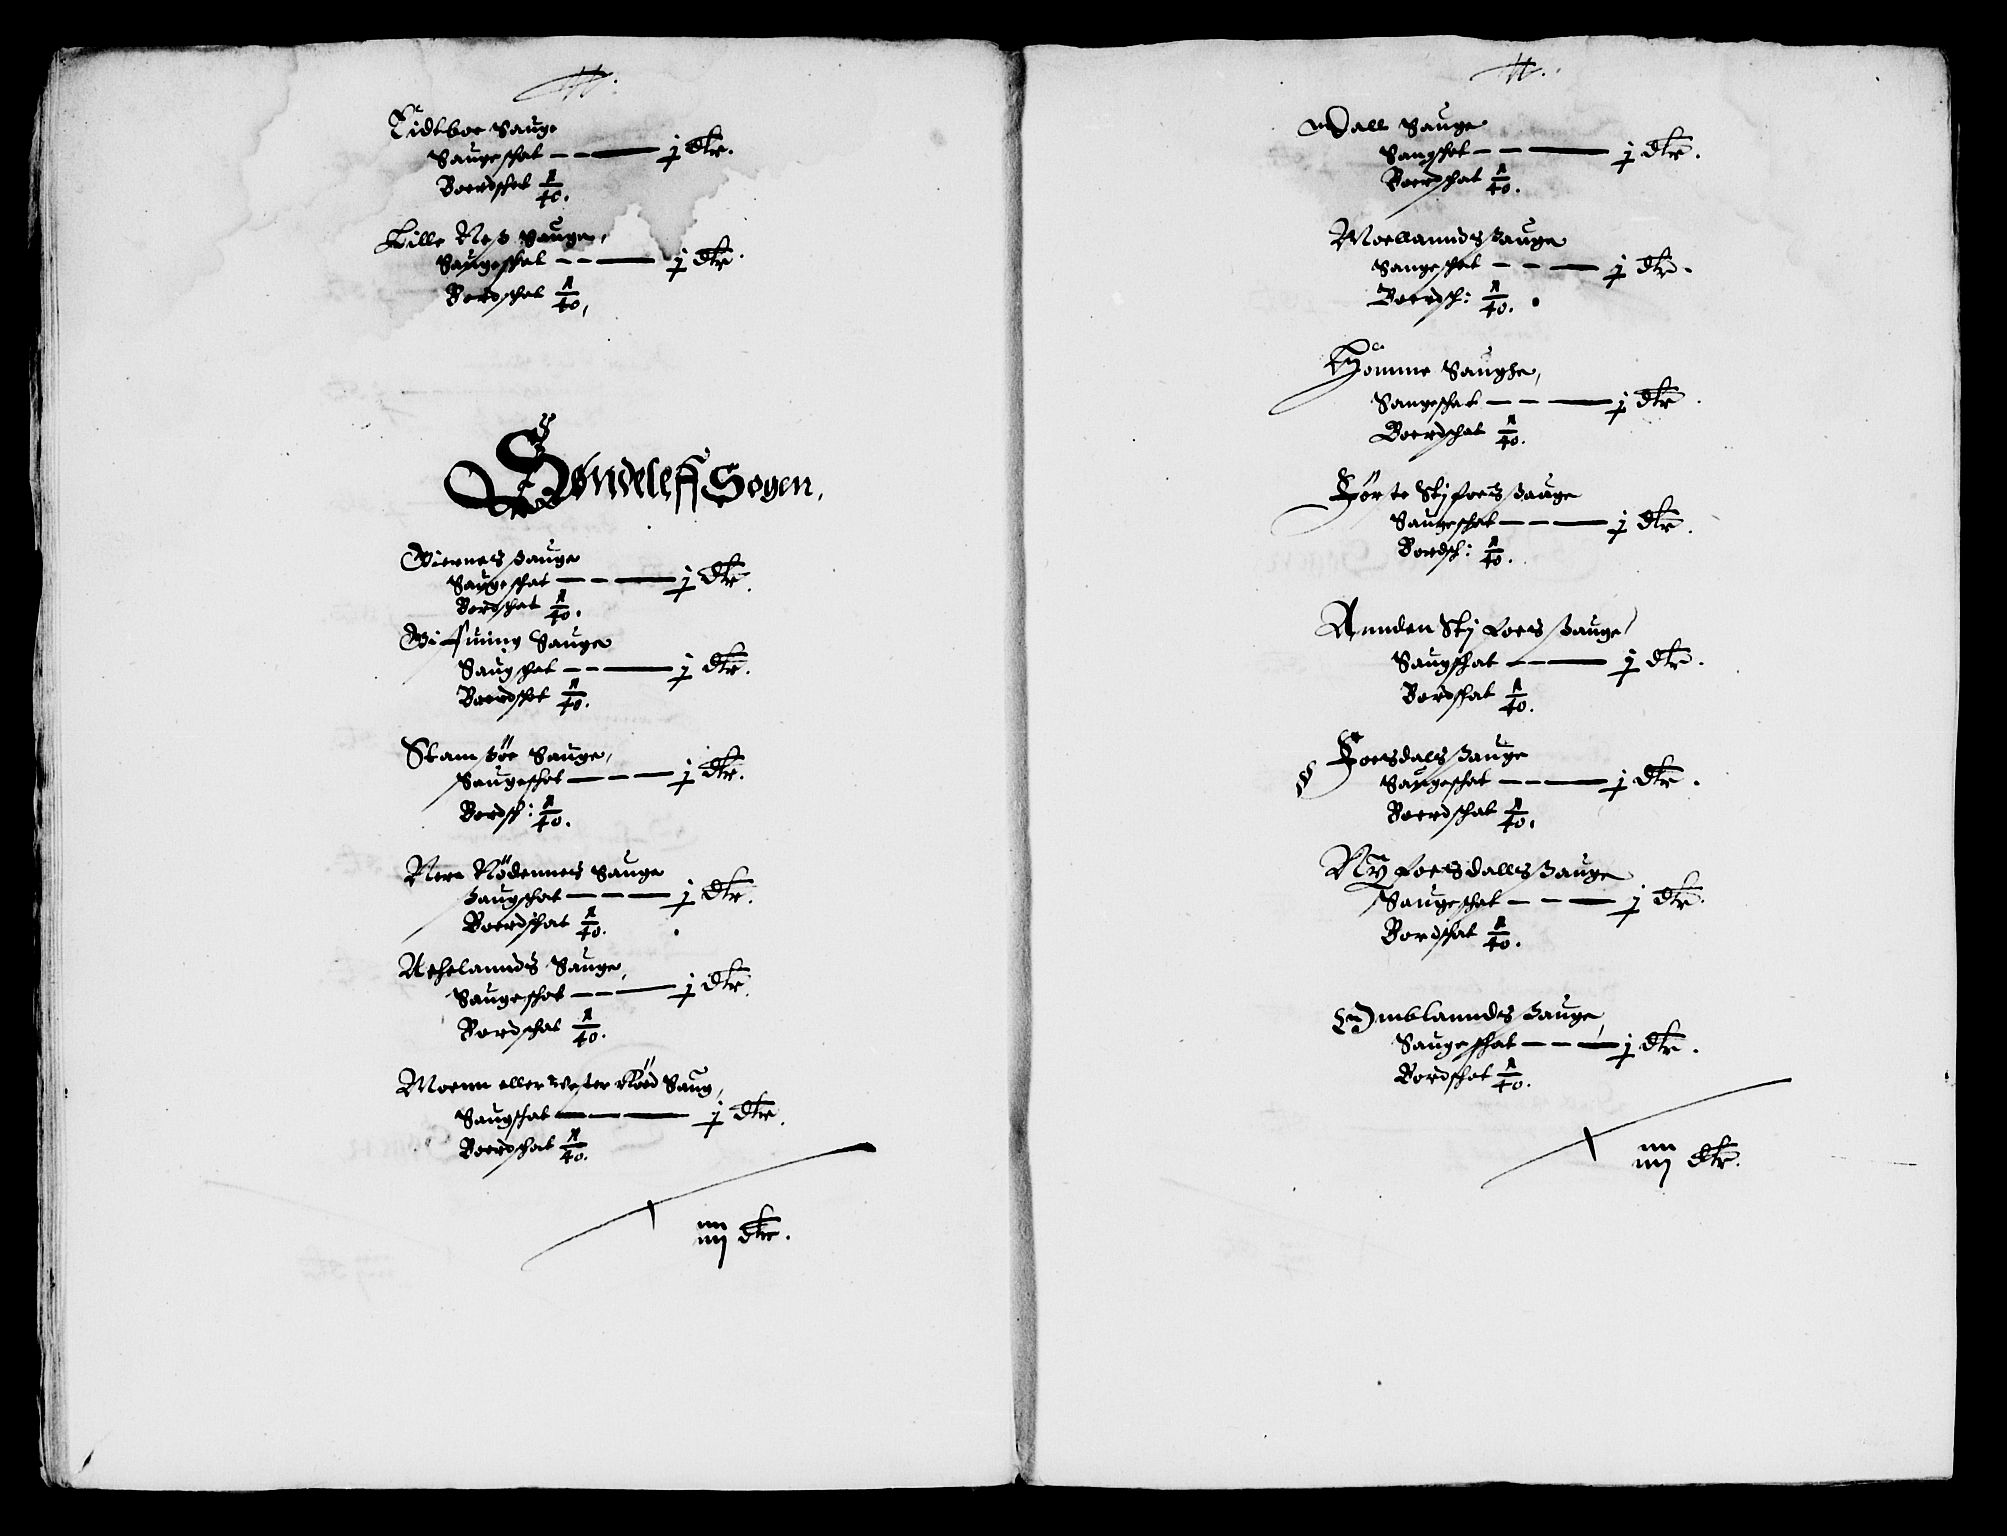 Tidtboe Sauge
Saugeschat — — — j dlr.
Boerdschat 1/40.
Lille Neß Sauge,
Saugeschat — — — j dlr.
Bordschat 1/40,
Søndeleff Sogen,
Biernes Sauge
Saugeschat — — — j dlr.
Bordschat 1/40.
Sauge
Saugschat — — — j dlr.
Boerdschat 1/40.
Stamsöe Sauge,
Saugeschat — — — j dlr.
Bordsch: 1/40.
Nere Rödennes Sauge
Saugschat — — — j dlr.
Boerdschat 1/40.
Aechelannds Sauge,
Saugeschat — — — j dlr.
Bordschat 1/40.
Moenn eller Vester Röd Saug,
Saugschat — — — j dlr.
Boerdschat 1/40.
iiii
iiij dlr.
Wall Sauge
Saugschat — — — j dlr.
Boerdschat 1/40.
Moellannds Sauge
Saugeschat — — — j dlr.
Boerdsch: 1/40.
Hommme Saughe,
Saugeschat — — — j dlr.
Boerdschat 1/40.
Förste Stifoes Sauge
Saugeschat — — — j dlr.
Bordsch: 1/40.
Annden Stifoes Sauge
Saugschat — — — j dlr.
Bordschat 1/40.
Foesdals Sauge
Saugeschat — — — j dlr.
Boerdschat 1/40,
Ny Foesdalls Sauge
Saugeschat — — — j dlr.
Bordschat 1/40.
Omblannds Sauge,
Saugeschat — — — j dlr.
Bordschat 1/40.
iiii
iiij dlr.